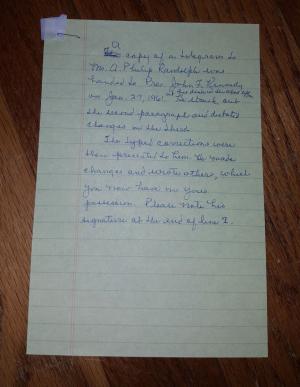 A
copy of a telegram to
Mr. A. Philip Randolph was
handed to Pres. John F. Kennedy
at his desk
on Jan. 27, 1961. He struck out
the second paragraph and dictated
changes on the
The typed corrections were
then presented to him. He made
changes and wrote others, which
you now have in your
possession. Please note his
signature at the end of line I.